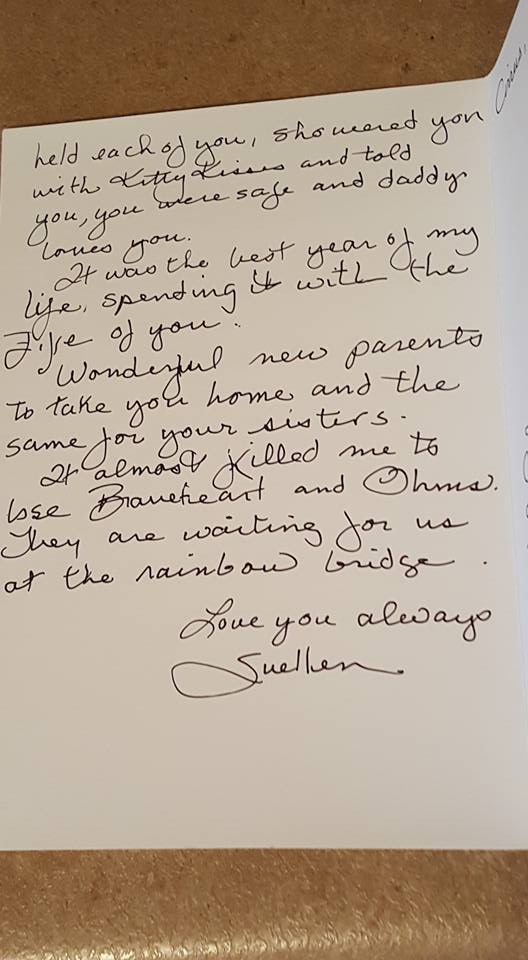 held each of you, showered you
with Kitty Kisses and told
you, you were safe and daddy
loves you.
It was the best year of my
life, spending it with the
Five of you.
Wonderful new parents
to take you home and the
same for your sisters.
It almost killed me to
lose Braveheart and Ohms.
They are waiting for us
at the rainbow bridge.
Love you always
Suellen